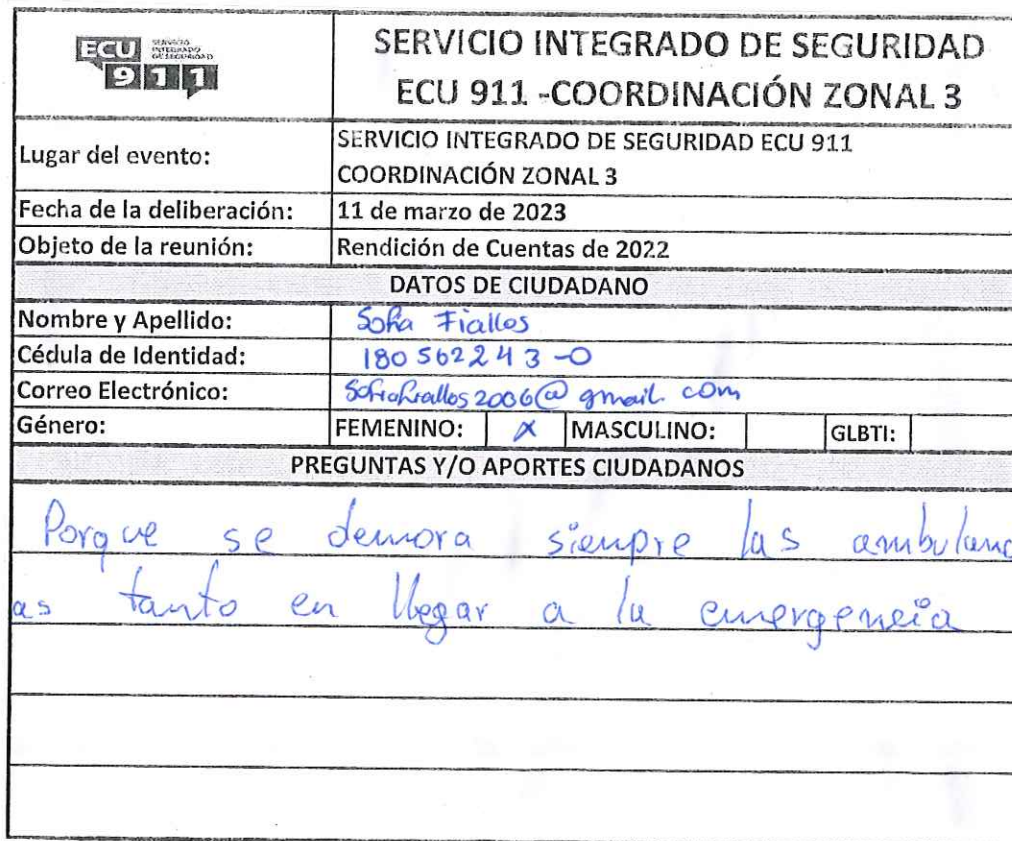 ECU SERVICIO INTEGRADO DE SEGURIDAD
911
SERVICIO INTEGRADO DE SEGURIDAD
ECU 911 -COORDINACIÓN ZONAL 3
Lugar del evento: SERVICIO INTEGRADO DE SEGURIDAD ECU 911
COORDINACIÓN ZONAL 3
Fecha de la deliberación: 11 de marzo de 2023
Objeto de la reunión: Rendición de Cuentas de 2022
DATOS DE CIUDADANO
Nombre y Apellido: Sofia Fiallos
Cédula de Identidad: 180562243-0
Correo Electrónico: Sofiafiallos2006@gmail.com
Género: FEMENINO: X MASCULINO: GLBTI:
PREGUNTAS Y/O APORTES CIUDADANOS
Porque se demora siempre las ambulanc
as tanto en llegar a la emergencia